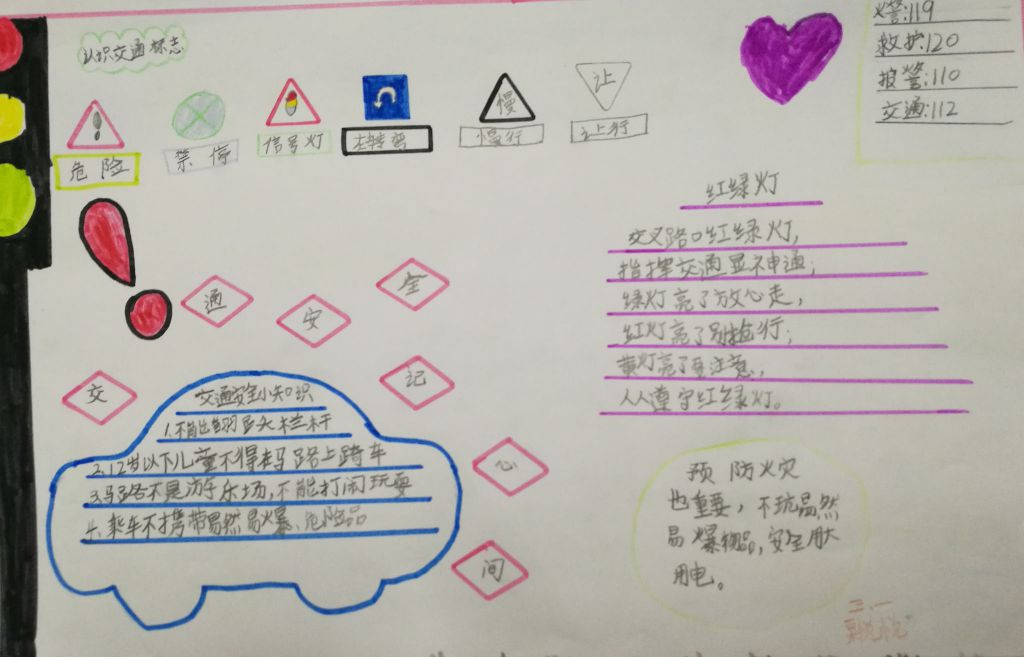 认识交通标志
火警:119
救护:120
报警:110
交通:112
慢
让
危险
禁停
信号灯
左转弯
慢行
让行
红绿灯
交叉路口红绿灯,
指挥交通显神通;
绿灯亮了放心走,
红灯亮了别抢行;
黄灯亮了要注意,
人人遵守红绿灯。
交
通
安
全
记
心
间
交通安全小知识
1.不能翻越护栏杆
2.12岁以下儿童不得在马路上骑车
3.马路不是游乐场,不能打闹玩耍
4.乘车不携带易然易爆、危险品
预防火灾
也重要,不玩易然
易爆物品,安全用火
用电。
三.一